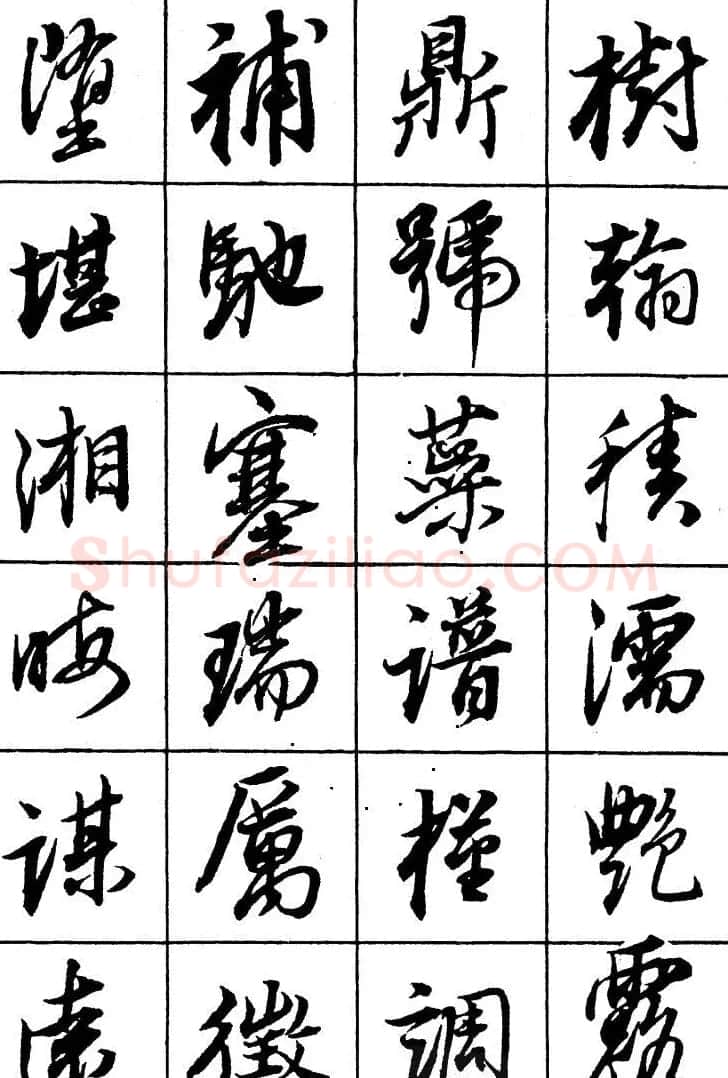 墮補鼎樹
堪馳號翰
湘塞藥積
晦瑞譜濡
謀厲槿艷
遠徵調霧
Shufaziliao.COM